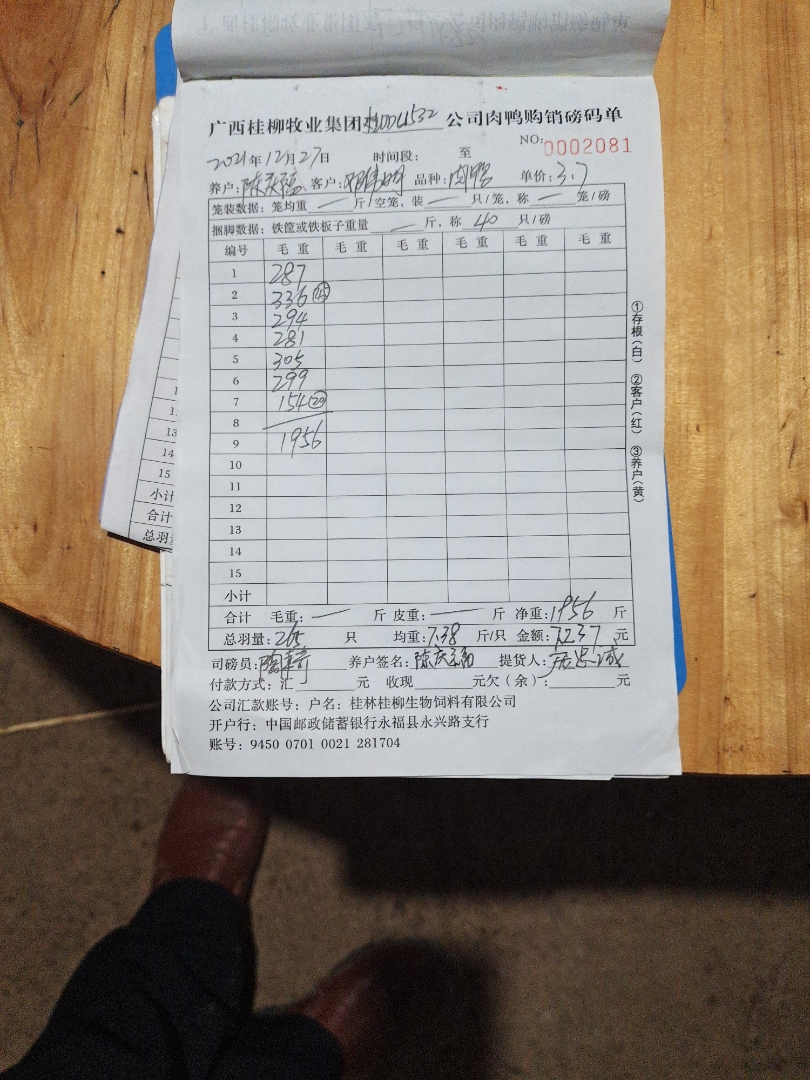 广西桂柳牧业集团桂D04532公司肉鸭购销磅码单
NO:0002081
2021年12月27日 时间段: 至
养户:陈庆福 客户: 品种:肉鸭 单价:3.7
笼装数据: 笼均重 — 斤/空笼, 装 — 只/笼, 称 — 笼/磅
捆脚数据: 铁筐或铁板子重量 — 斤, 称 40 只/磅
编号 毛重 毛重 毛重 毛重 毛重 毛重
1 287
2 336 (45)
3 294
4 281
5 305
6 299
7 154 (20)
8
9 1956
10
11
12
13
14
15
小计
合计 毛重: — 斤 皮重: — 斤 净重:1956 斤
总羽量:265 只 均重:7.38 斤/只 金额:7237 元
司磅员: 养户签名:陈庆福 提货人:
付款方式: 汇 元 收现 元欠(余): 元
公司汇款账号: 户名: 桂林桂柳生物饲料有限公司
开户行: 中国邮政储蓄银行永福县永兴路支行
账号: 9450 0701 0021 281704
①存根(白) ②客户(红) ③养户(黄)
13
14
15
小计
合计
总羽